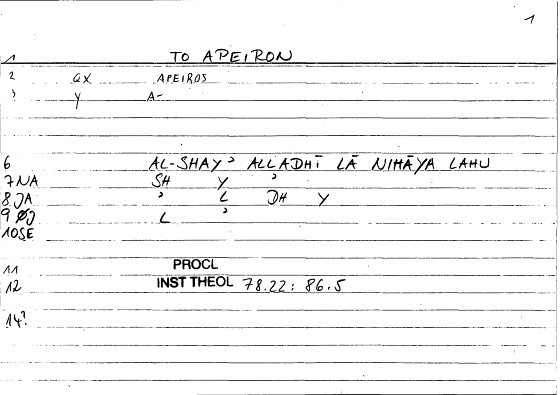 1
1 TO APEIRON
2 GX APEIROS
3 Y A-
6 AL-SHAYʾ ALLADHĪ LĀ NIHĀYA LAHU
7 NA SH Y ʾ
8 JA ʾ L DH Y
9 ØJ L ʾ
10 SE
11 PROCL
12 INST THEOL 78.22: 86.5
14?